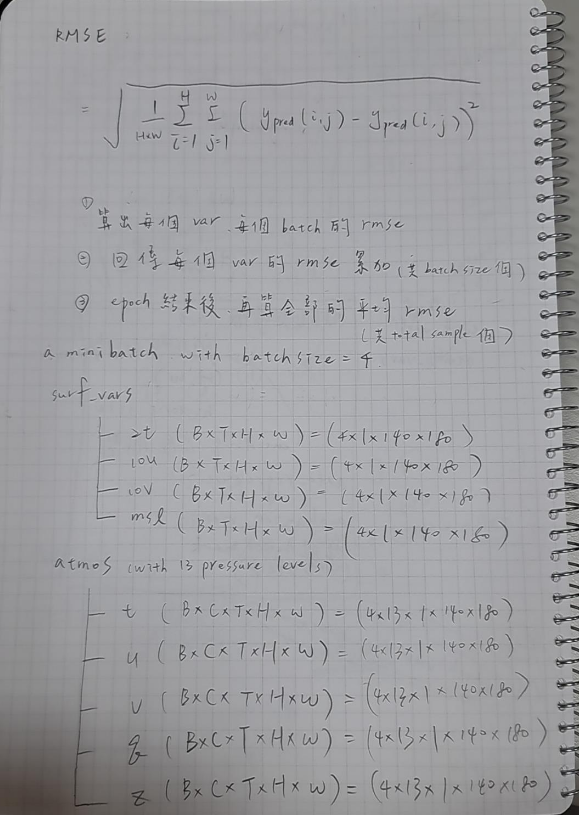 RMSE
= √ 1/H×W Σ i=1 H Σ j=1 W ( y pred (i,j) - y pred (i,j) )²
① 算出每個 var、每個 batch 的 rmse
② 回傳每個 var 的 rmse 累加 (共 batch size 個)
③ epoch 結束後、再算全部的平均 rmse
(共 total sample 個)
a minibatch with batch size = 4
surf_vars
2t (B×T×H×W) = (4×1×140×180)
10u (B×T×H×W) = (4×1×140×180)
10v (B×T×H×W) = (4×1×140×180)
msl (B×T×H×W) = (4×1×140×180)
atmos (with 13 pressure levels)
t (B×C×T×H×W) = (4×13×1×140×180)
u (B×C×T×H×W) = (4×13×1×140×180)
v (B×C×T×H×W) = (4×13×1×140×180)
q (B×C×T×H×W) = (4×13×1×140×180)
z (B×C×T×H×W) = (4×13×1×140×180)